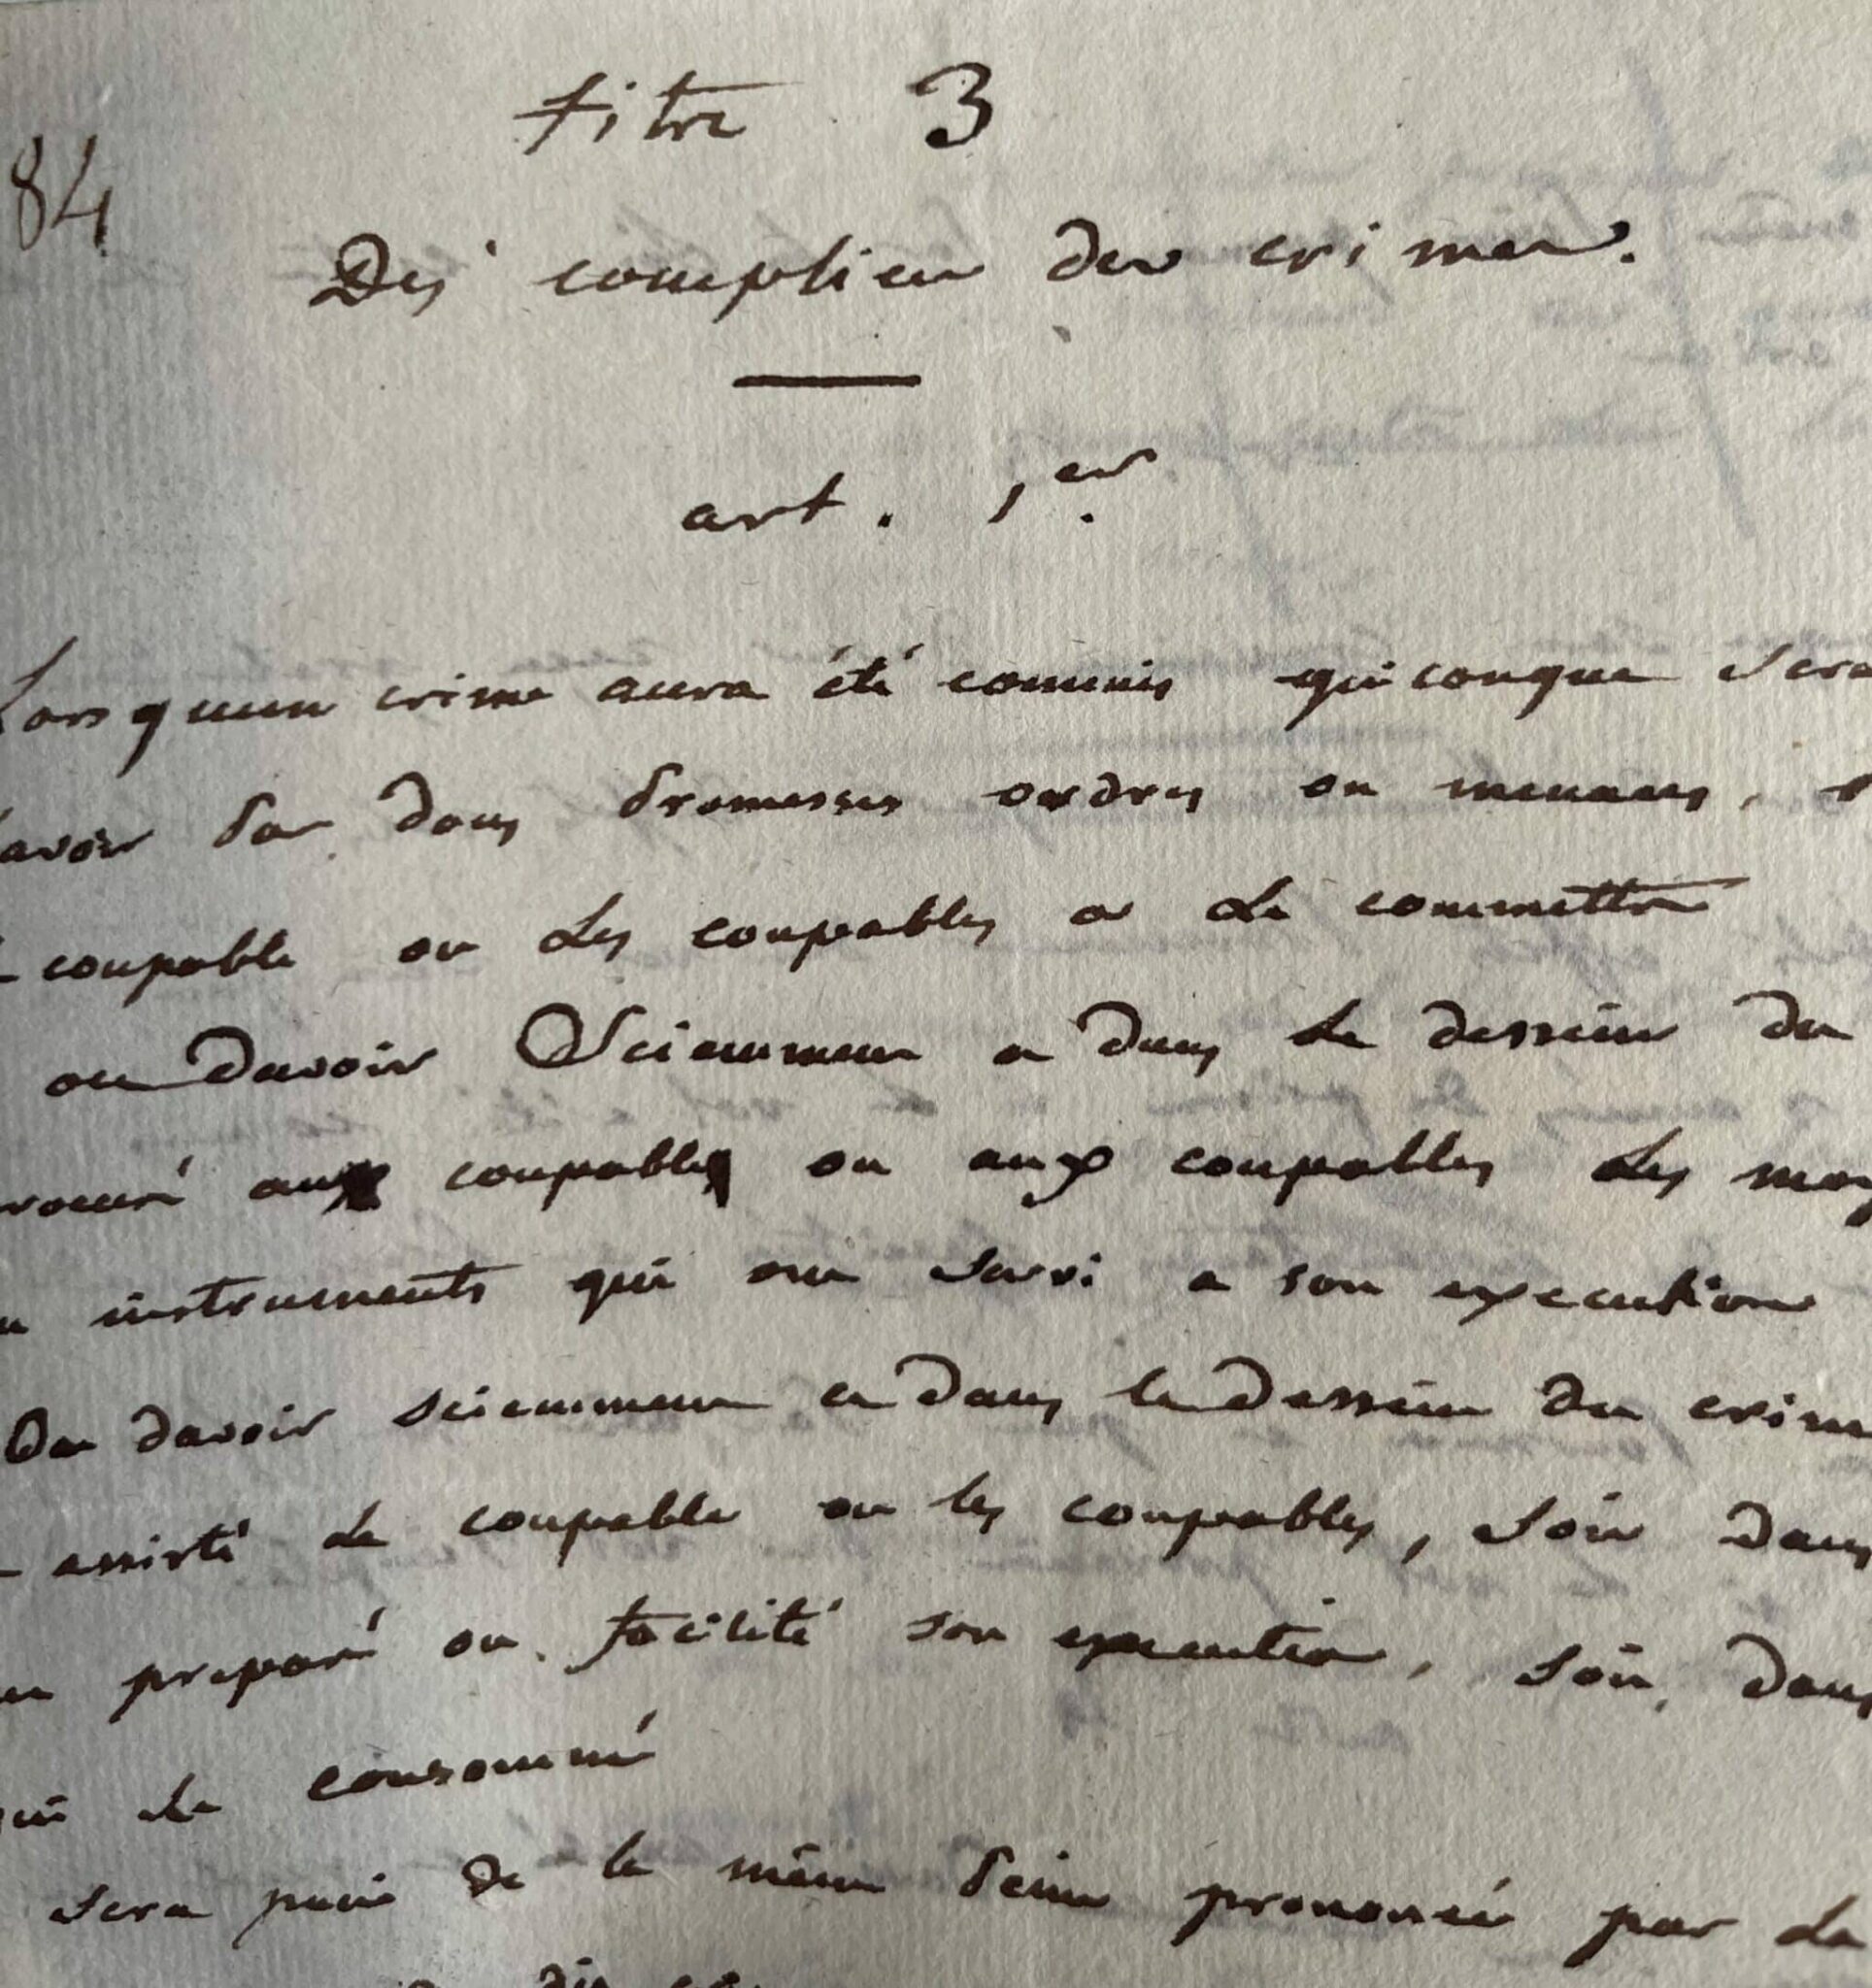 titre 3
84
Des complices des crimes.
art. 1er.
Lorsquun crime aura été commis quiconque sera
avoir par dons promesses ordres ou menaces,
coupable ou les coupables a le commettre
ou davoir Sciemment et dans le dessein du
rocuré aux coupables ou aux coupables les moy
instruments qui ont servi a son execution
Ou davoir sciemment et dans le dessein du crime
assisté le coupable ou les coupables, soit dans
preparé ou facilité son execution, soit dans
qui la consommé
sera punie de la même peine prononcée par la